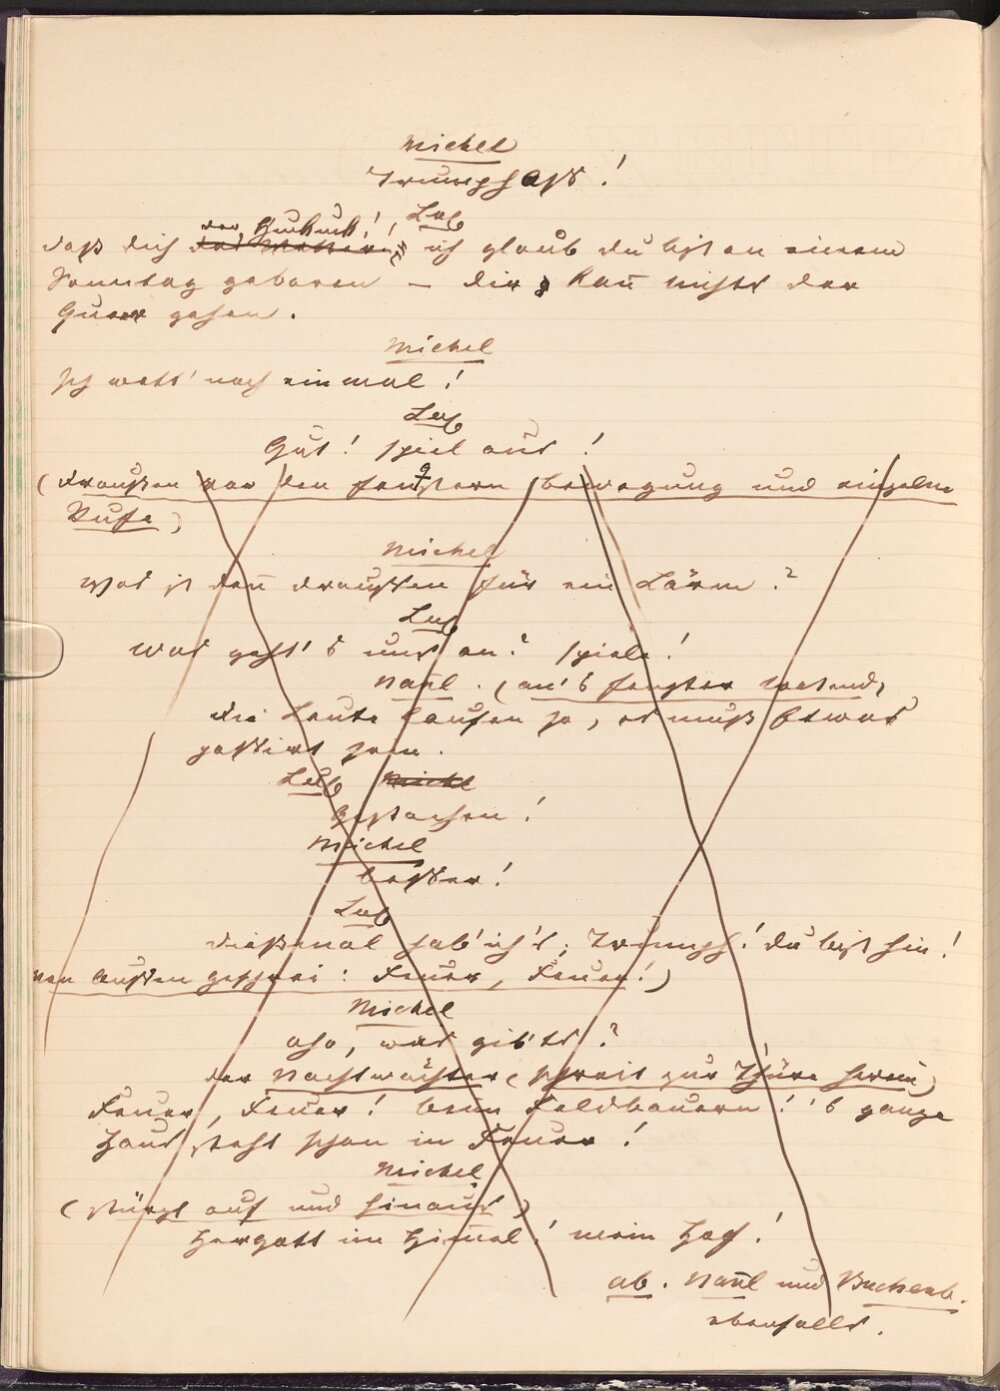 Michel
Trumpf Aß!
Lex
der Guckuck!!
daß dich das Wetter ich glaub du bist an einem
Sonntag geboren – dir kañ nichts der
Quer gehen.
Michel
Ich wett' noch einmal!
Lex
Gut! spiel aus!
(Draußen vor den Fenstern Bewegung und einzelne
Rufe)
Michel
Was ist deñ draußen für ein Lärm?
Lex
was geht's uns an? spiele!
Nañl. (an's Fenster tretend)
die Leute laufen ja, es muß Etwas
passirt sein.
Lex Michl
Gestochen!
Michel
besser!
Lex
dießmal hab' ich's; Trumpf! du bist hin!
von Außen Geschrei: Feuer, Feuer!)
Michel
oho, was gibt's?
der Nachtwächter (schreit zur Thüre herein)
Feuer, Feuer! beim Feldbauern! 's ganze
Haus steht schon in Feuer!
Michel
(stürzt auf und hinaus)
Hergott im Him̄el! mein Hof!
ab. Nañl und Buchenb.
ebenfalls.